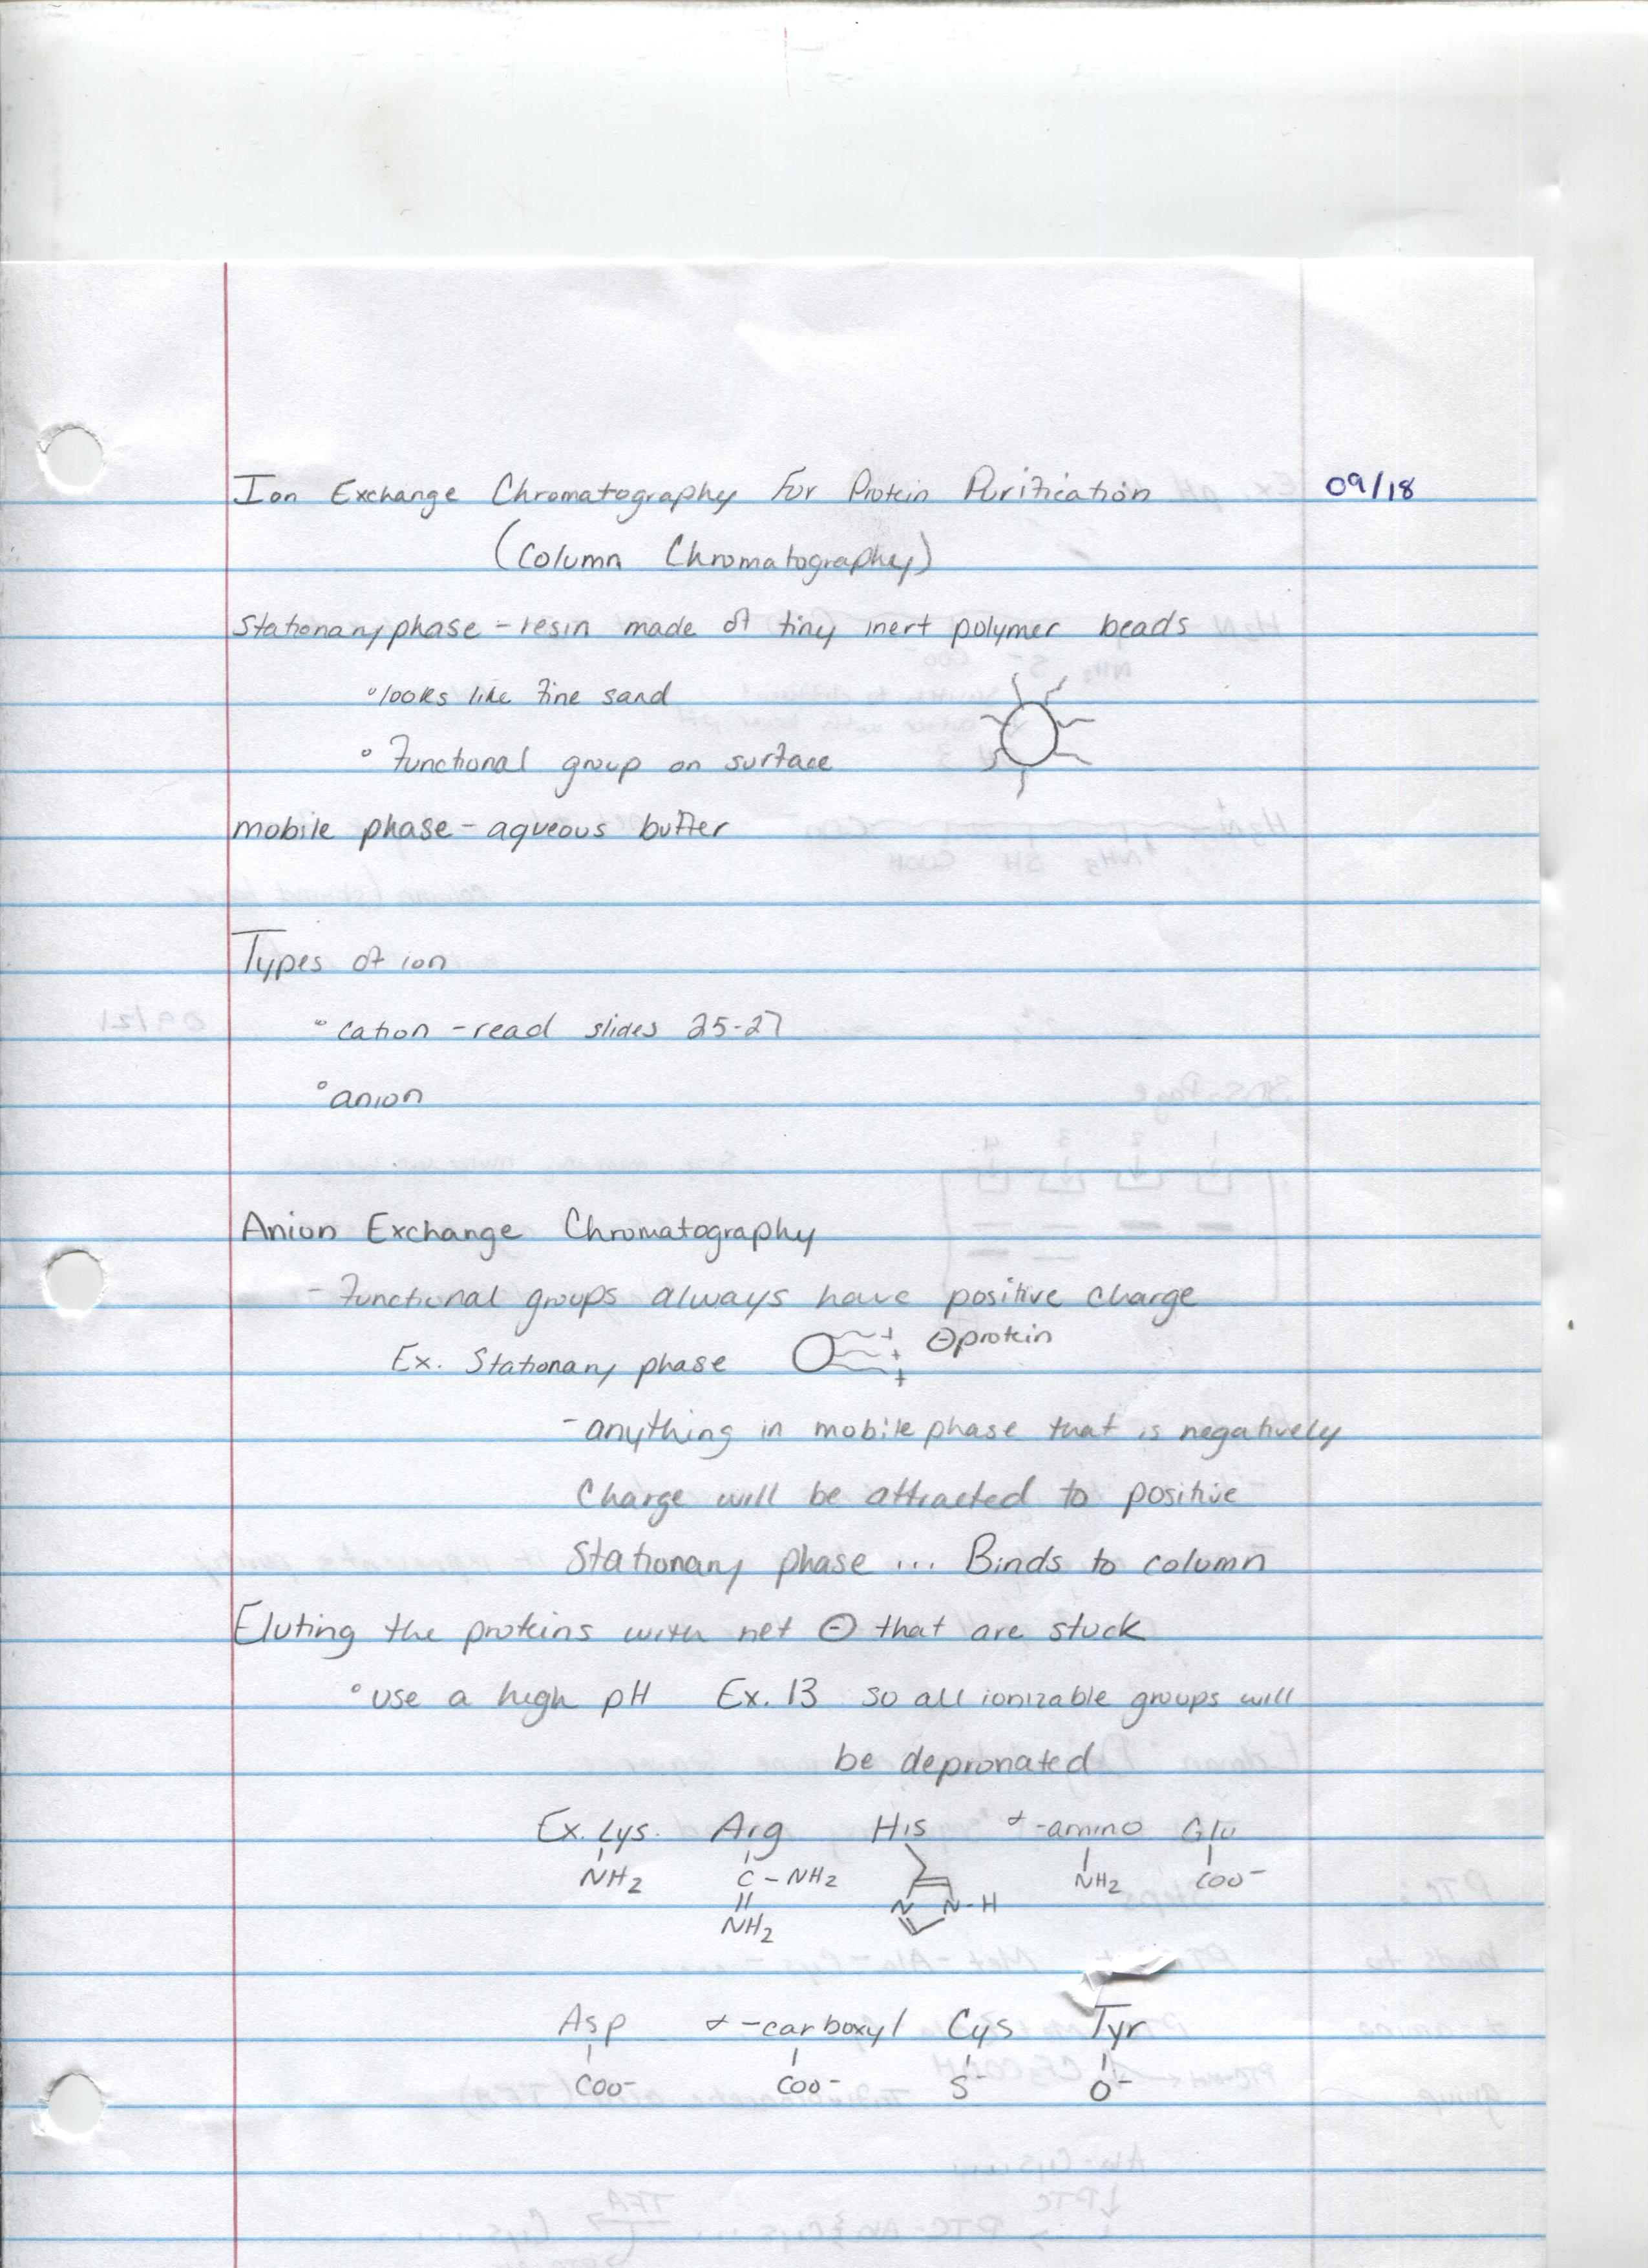 Ion Exchange Chromatography For Protein Purification 09/18
(Column Chromatography)
Stationary phase - resin made of tiny inert polymer beads
° looks like fine sand
° Functional group on surface
mobile phase - aqueous buffer
Types of ion
° cation - read slides 25-27
° anion
Anion Exchange Chromatography
- Functional groups always have positive charge
Ex. Stationary phase + + + ⊖protein
- anything in mobile phase that is negatively
Charge will be attracted to positive
Stationary phase ... Binds to column
Eluting the proteins with net ⊖ that are stuck
° use a high pH Ex. 13 so all ionizable groups will
be depronated
Ex. Lys. Arg His α-amino Glu
NH2 C - NH2 NH2 COO-
NH2 N N-H
Asp α-carboxyl Cys Tyr
COO- COO- S- O-